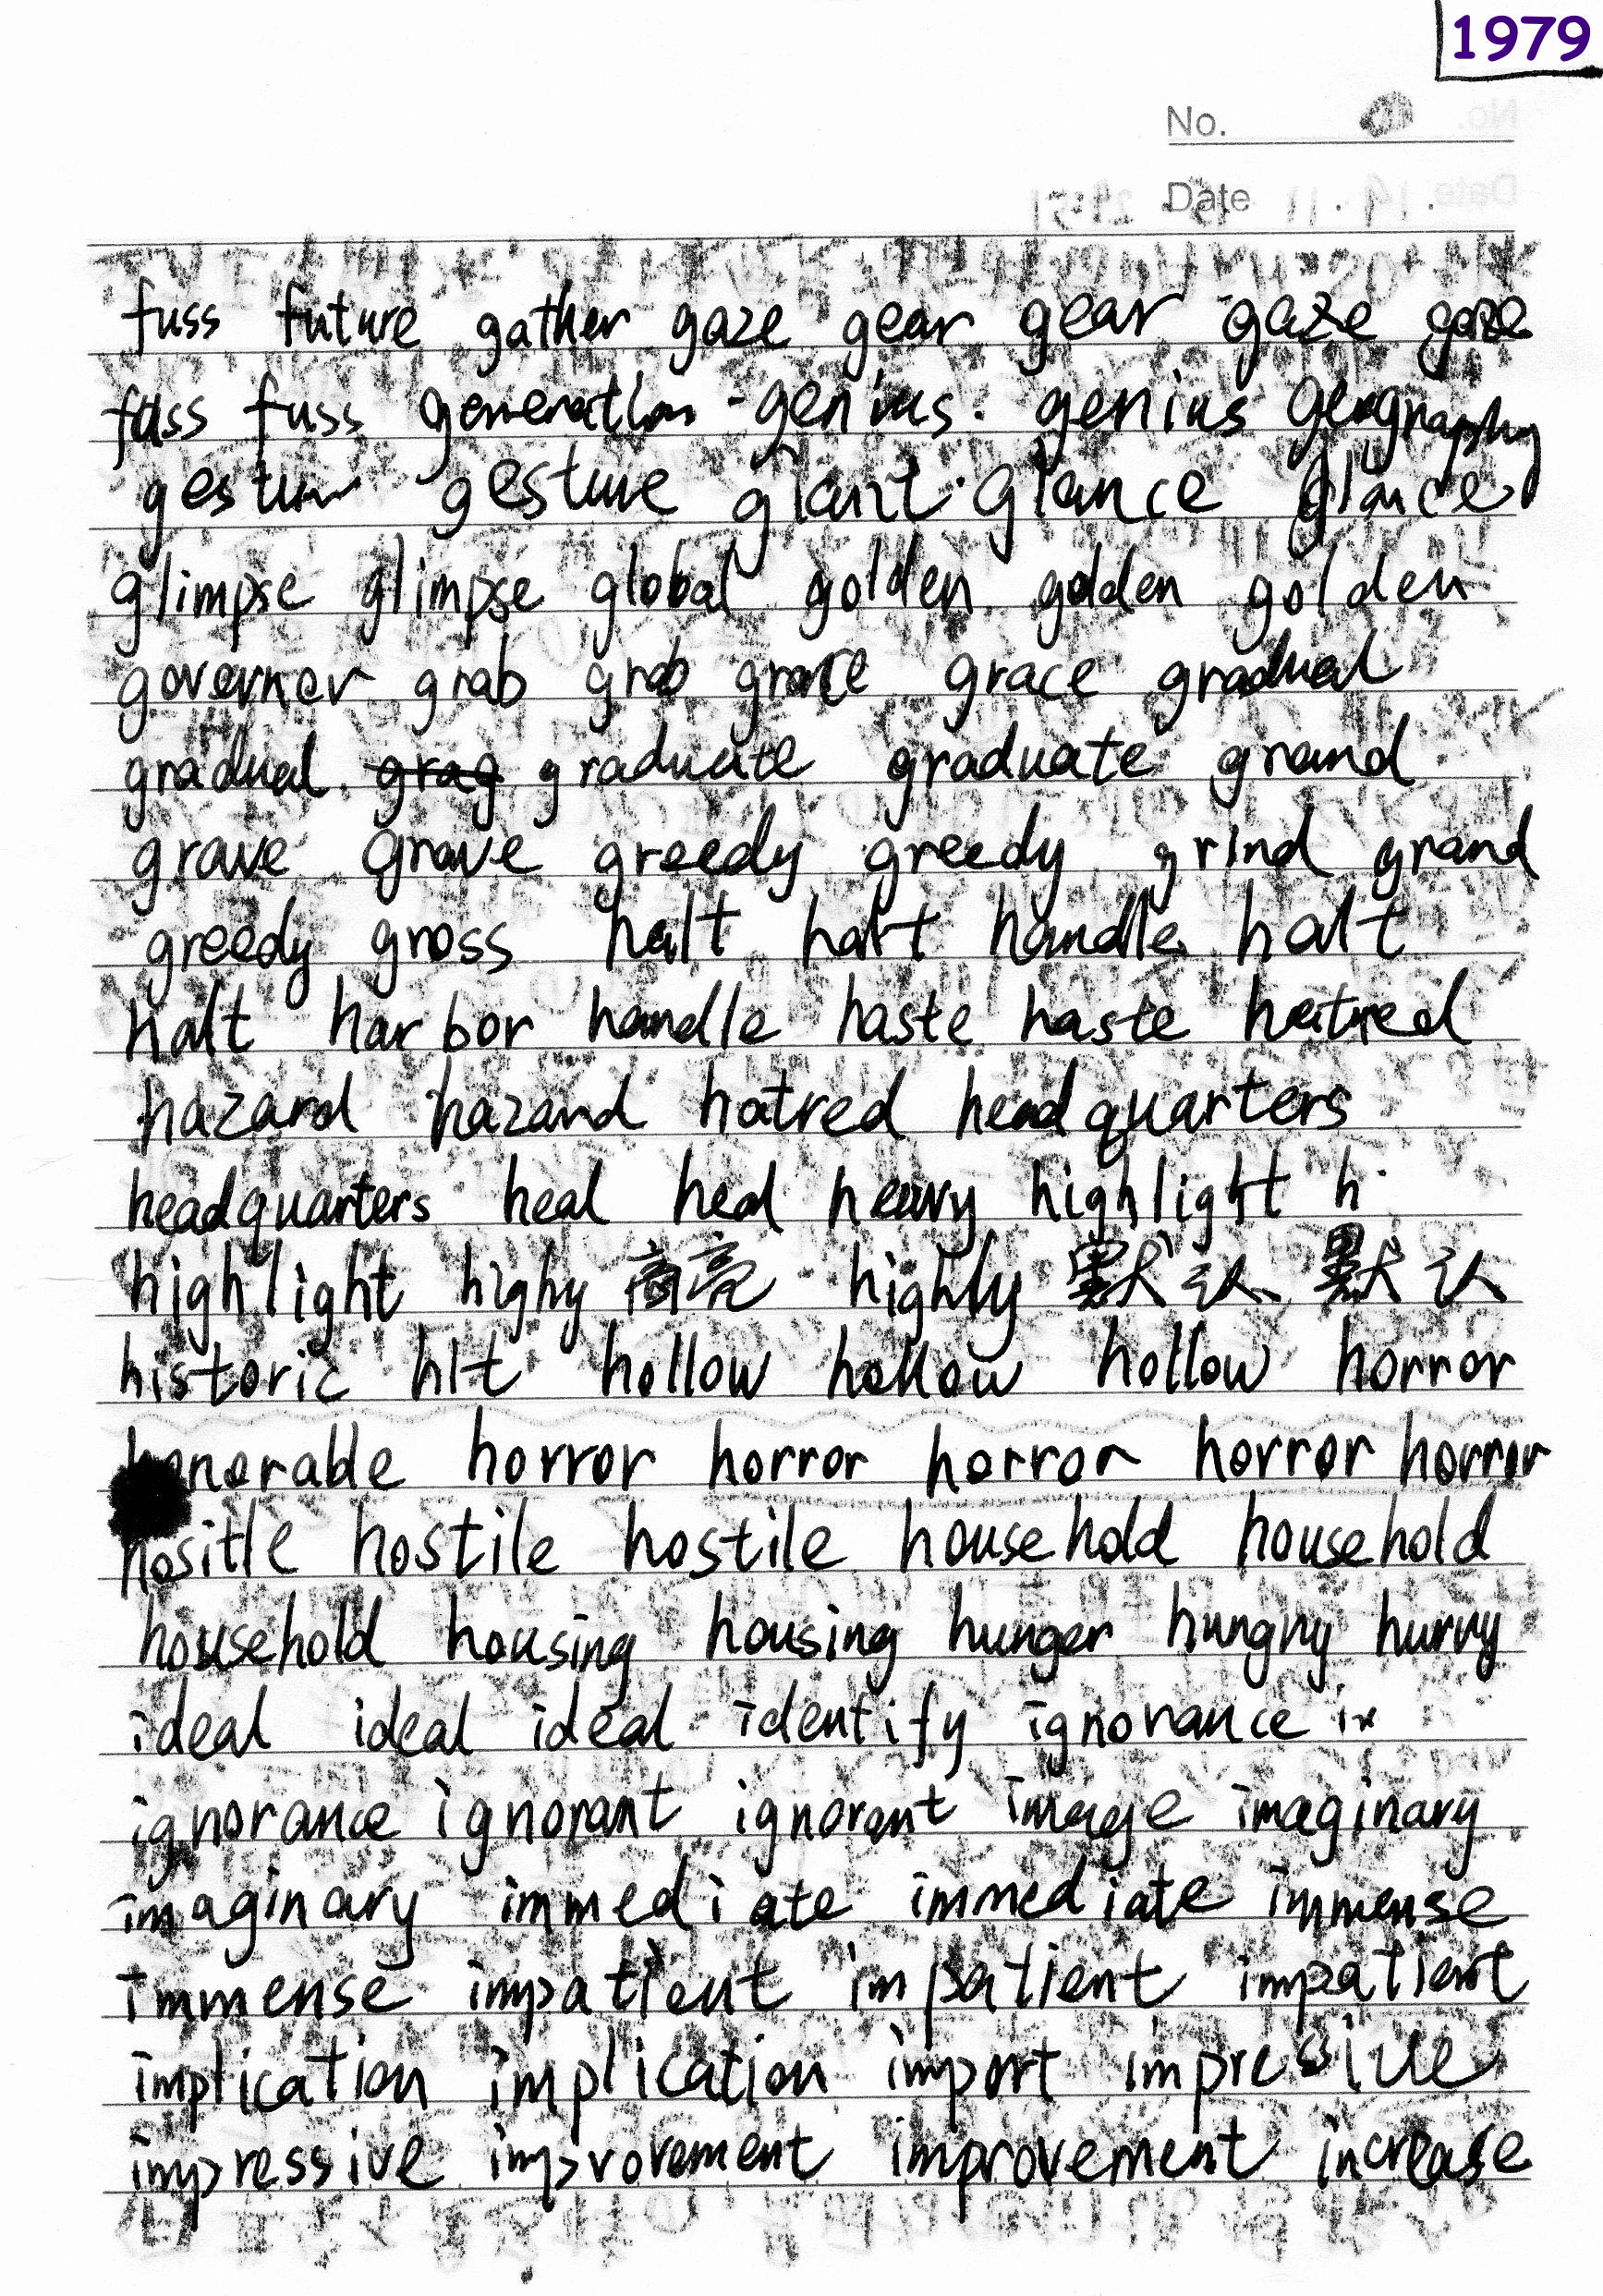 1979
No.
Date
fuss future gather gaze gear gear gaze gaze
fuss fuss generation genius. genius geography
gesture gesture giant glance glance
glimpse glimpse global golden golden golden
governor grab grab grace grace gradual
gradual grag graduate graduate grand
grave grave greedy greedy grind grand
greedy gross halt halt handle halt
halt harbor handle haste haste hatred
hazard hazard hatred headquarters
headquarters heal heal heavy highlight h
highlight highy 高亮 highly 默认 默认
historic hit hollow hollow hollow horror
honorable horror horror horror horror horror
hositle hostile hostile household household
household housing housing hunger hungry hurry
ideal ideal ideal identify ignorance
ignorance ignorant ignorant image imaginary
imaginary immediate immediate immense
immense impatient impatient impatient
implication implication import impressive
impressive improvement improvement increase